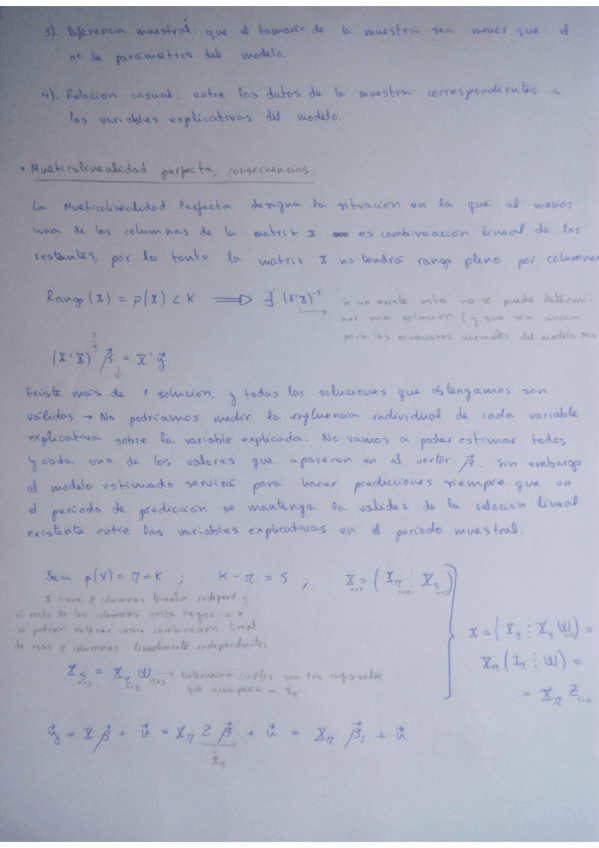 3). Deficiencia muestral: que el tamaño de la muestra sea menor que el
nº de parámetros del modelo.
4). Relación casual: entre los datos de la muestra correspondientes a
las variables explicativas del modelo.
• Multicolinealidad perfecta, consecuencias:
La Multicolinealidad Perfecta designa la situación en la que al menos
una de las columnas de la matriz X es combinación lineal de las
restantes, por lo tanto la matriz X no tendrá rango pleno por columnas
Rango (X) = ρ(X) < K ⟹ ∄ (X'X)⁻¹
Si no existe esto no se puede determi-
nar una solución (y que sea única
para las ecuaciones normales del modelo
(X'X) β⃗ = X' y⃗
Existe más de 1 solución, y todas las soluciones que obtengamos son
válidas → No podríamos medir la influencia individual de cada variable
explicativa sobre la variable explicada. No vamos a poder estimar todos
y cada uno de los valores que aparecen en el vector β⃗. Sin embargo
el modelo estimado servirá para hacer predicciones siempre que en
el periodo de predicción se mantenga la validez de la relación lineal
existente entre las variables explicativas en el periodo muestral.
Sea ρ(X) = r < K ; K - r = S ; X = (X_r ⋮ X_s)
X tiene r columnas lineal independ y
el resto de las columnas hasta llegar a K
se podrían obtener como combinación lineal
de esas r columnas linealmente independientes
X_s = X_r W → determina cuáles son los
X = (X_r ⋮ X_r W) =
X_r (I_r ⋮ W) =
= X_r Z
y⃗ = X β⃗ + u⃗ = X_r Z β⃗ + u⃗ = X_r β⃗_r + u⃗